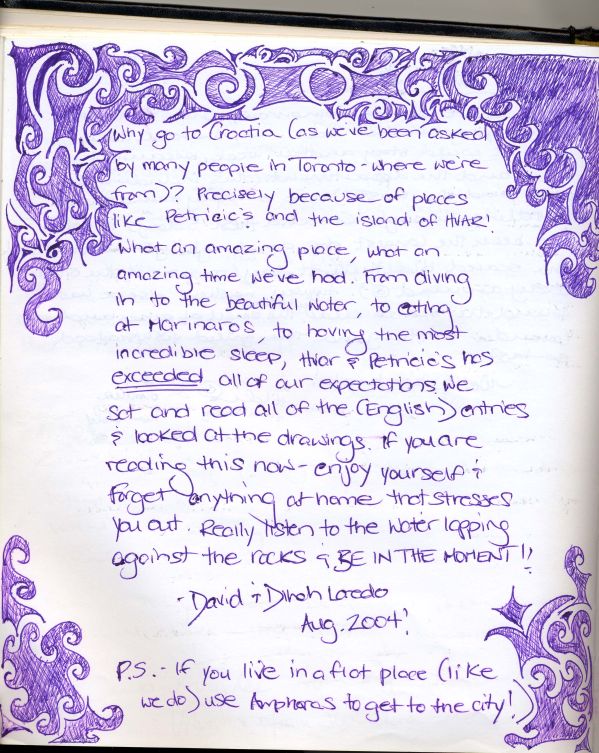 Why go to Croatia (as we've been asked
by many people in Toronto - where we're
from)? Precisely because of places
like Petricic's and the island of HVAR!
What an amazing place, what an
amazing time we've had. From diving
in to the beautiful water, to eating
at Marinaros, to having the most
incredible sleep, Hvar & Petricic's has
exceeded all of our expectations. We
sat and read all of the (English) entries
& looked at the drawings. If you are
reading this now - enjoy yourself &
forget anything at home that stresses
you out. Really listen to the water lapping
against the rocks & BE IN THE MOMENT!!
- David & Dinah Laredo
Aug. 2004!
P.S. - If you live in a flat place (like
we do) use Amphoras to get to the city!)